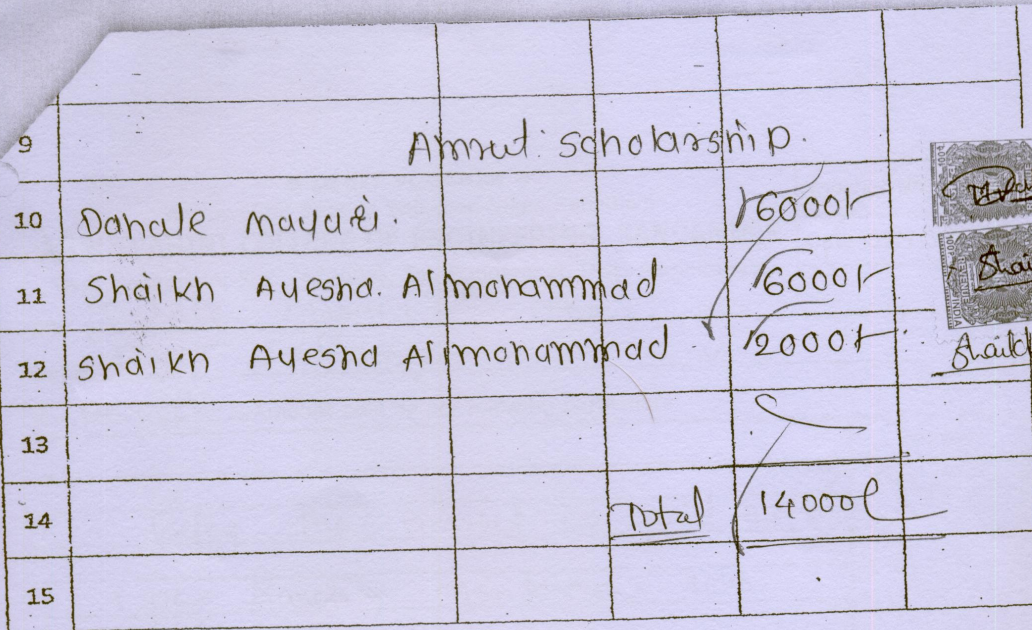 9 Amrut scholarship.
10 Dahale mayuri. 6000/-
11 Shaikh Ayesha. Almohammad 6000/-
12 Shaikh Ayesha Almohammad 2000/-
Shaikh
13
14 Total 14000/-
15